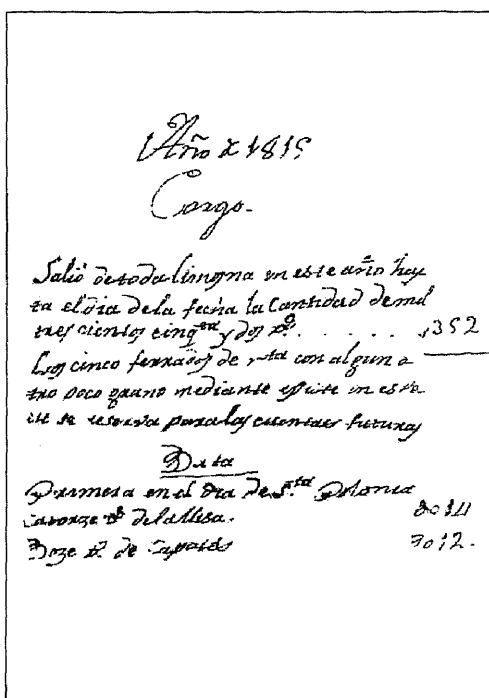 Año d 1815
Cargo.
Salió de toda limogna en este año has
ta el dia de la fecha la Cantidad de mil
tres cientos cinqta y dos rs. . . . . . 1352
Los cinco ferrados de rta con algun o
tro poco grano mediante existe en es
se reserva para las cuentas futuras
Data
Primera en el dia de Sta Polonia
Catorze rs de la Misa. 0014
Doze rs de 0012.